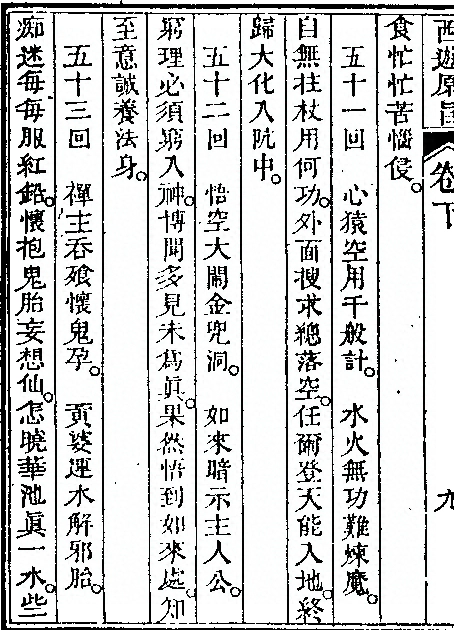 西遊原旨 卷下 九
食忙忙苦惱侵。
五十一回 心猿空用千般計。 水火無功難煉魔。
自無拄杖用何功。外面搜求總落空。任爾登天能入地。終
歸大化入阬中。
五十二回 悟空大鬧金兜洞。 如來暗示主人公。
窮理必須窮入神。博聞多見未爲眞。果然悟到如來處。知
至意誠養法身。
五十三回 禪主吞飱懷鬼孕。 黃婆運水解邪胎。
痴迷每每服紅鉛。懷抱鬼胎妄想仙。怎曉華池眞一水。些